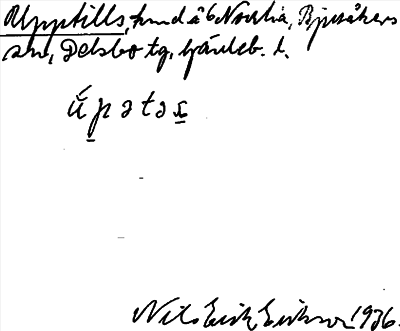 Upptills, hmd å 6 Norrlia, Bjuråkers
sn, Delsbo tg, Gävleb. l.
ú p ə t ə s
Nils Erik Erikson 1936.